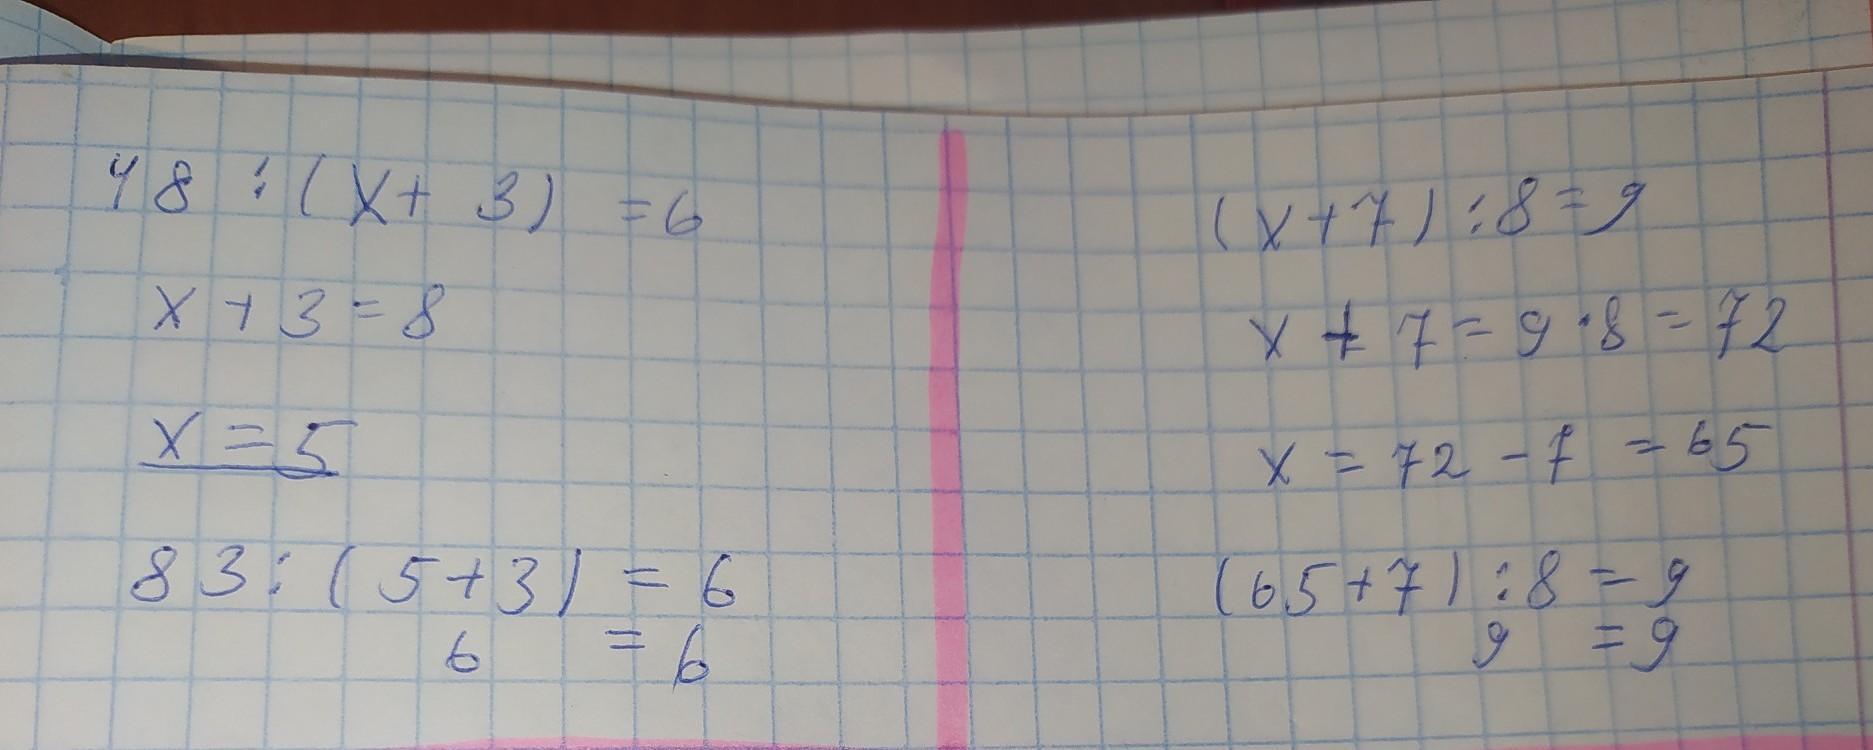 48 : (x + 3) = 6
x + 3 = 8
x = 5
83 : (5 + 3) = 6
6 = 6
(x + 7) : 8 = 9
x + 7 = 9 · 8 = 72
x = 72 - 7 = 65
(65 + 7) : 8 = 9
9 = 9